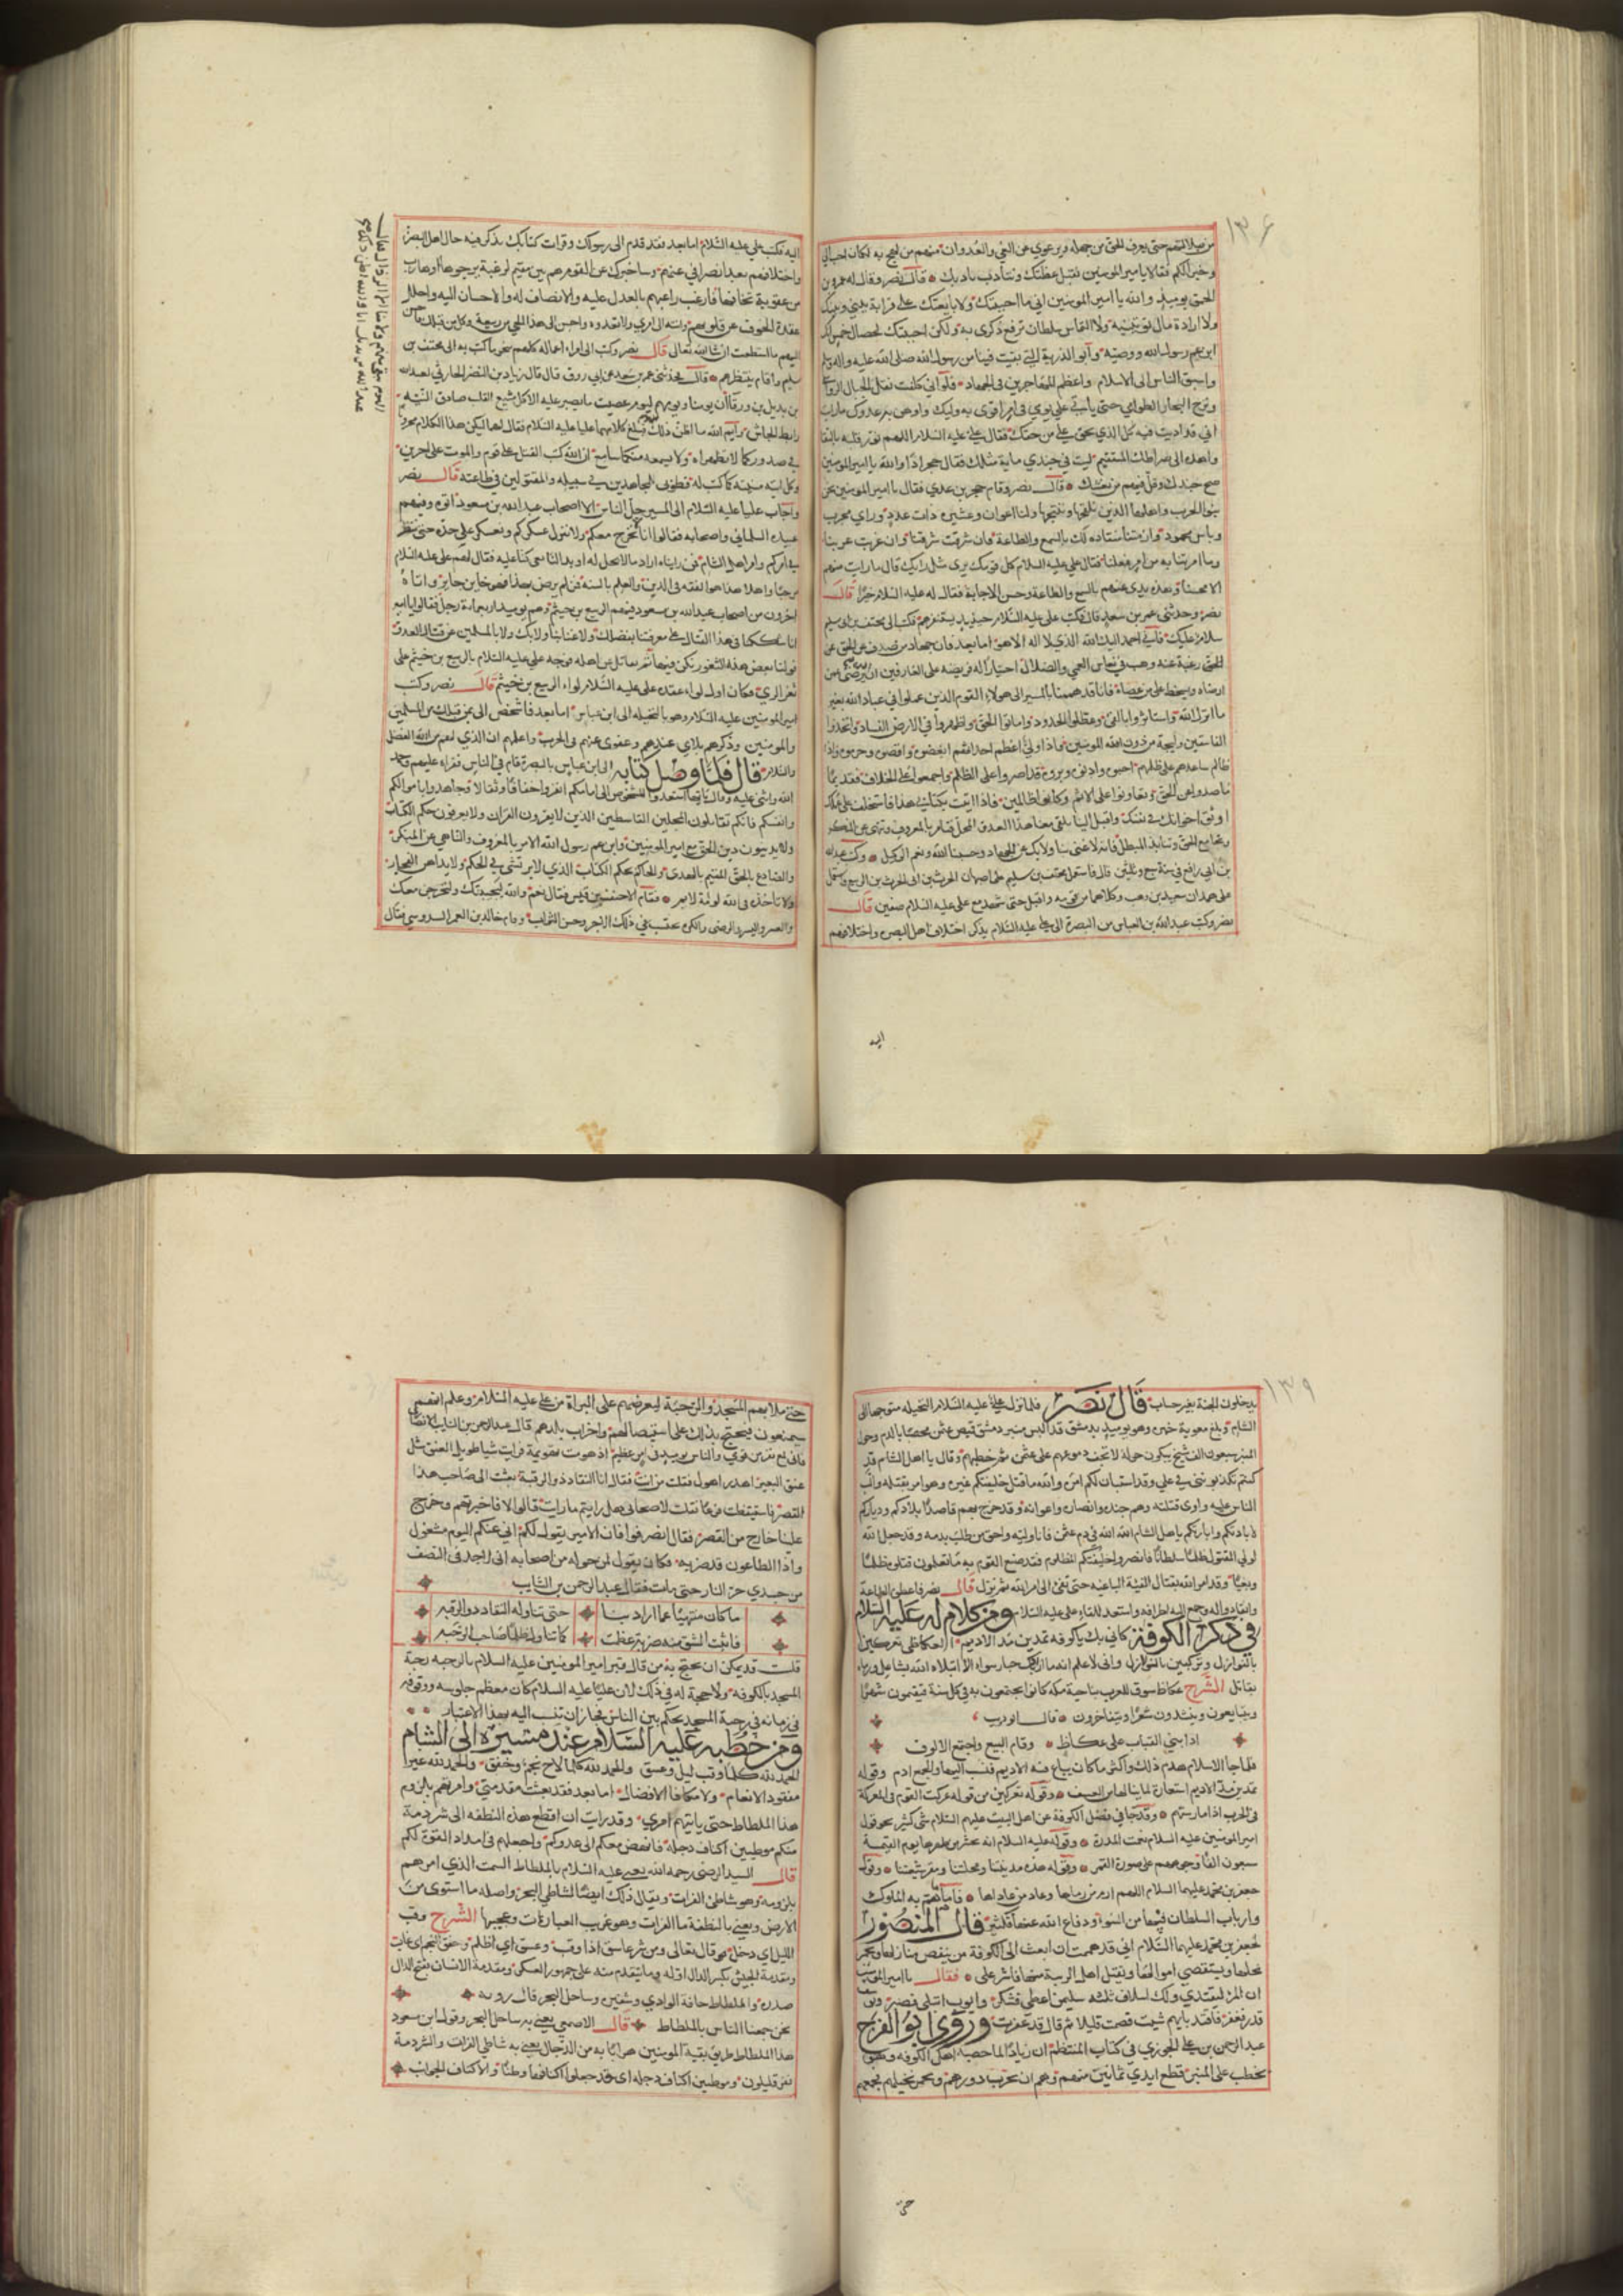 ١٣٦
من ضل المنهم حتى يعرف الحق من جهله ويرعوي عن الغي والعدوان منهم من لهج به لكان احب الي
وخيرا لكم فقالا يا امير المومنين نقبل عظتك ونتادب بادبك قال نصر وقال له عمرو بن
الحمق يوميذ والله يا امير المومنين اني ما احببتك ولا بايعتك على قرابة بيني وبينك
ولا ارادة مال توتينيه ولا التماس سلطان ترفع ذكري به ولكن احببتك لخصال خمس انك
ابن عم رسول الله ووصيه وابو الذرية التي بقيت فينا من رسول الله صلى الله عليه واله وسلم
واسبق الناس الى الاسلام واعظم المهاجرين في الجهاد فلو اني كلفت نقل الجبال الرواسي
ونزح البحار الطوامي حتى ياتي على يومي في امر اقوى به وليك واوهن به عدوك ما رايت
اني قد اديت فيه كل الذي يحق علي من حقك فقال علي عليه السلام اللهم نور قلبه بالتقى
واهده الى صراطك المستقيم ليت في جندي ماية مثلك فقال حجر اذا والله يا امير المومنين
صح جندك وقل فيهم من يغشك قال نصر وقام حجر بن عدي فقال يا امير المومنين نحن
بنو الحرب واهلها الذين نلقحها وننتجها ولنا اعوان وعشيرة ذات عدد وراي مجرب
وباس محمود وازمتنا منقادة لك بالسمع والطاعة فان شرقت شرقنا وان غربت غربنا
وما امرتنا به من امر فعلنا فقال علي عليه السلام كل قومك يرى مثل رايك قال ما رايت منهم
الا حسنا وهذه يدي عنهم بالسمع والطاعة وحسن الاجابة فقال له عليه السلام خيرا قال
نصر وحدثني عمر بن سعد قال وكتب علي عليه السلام حينيذ يستنفرهم فكتب الى مخنف بن سليم
سلام عليك فاني احمد اليك الله الذي لا اله الا هو اما بعد فان جهاد من صدف عن الحق
الحق رغبة عنه وهب في نعاس العمى والضلال اختيارا له فريضة على العارفين ان الله يرضى عمن
ارضاه ويسخط على من عصاه فانا قد هممنا بالمسير الى هولاء القوم الذين عملوا في عباد الله بغير
ما انزل الله واستاثروا بالفيء وعطلوا الحدود واماتوا الحق واظهروا في الارض الفساد واتخذوا
الفاسقين وليجة من دون الله المومنين فاذا ولي الله اعظم احداثهم ابغضوه واقصوه وحرموه واذا
ظالم ساعدهم على ظلمهم احبوه وادنوه وبروه فقد اصروا على الظلم واجمعوا على الخلاف فقديما
ما صدوا عن الحق وتعاونوا على الاثم وكانوا ظالمين فاذا اتيت بكتابي هذا فاستخلف على عملك
اوثق اصحابك في نفسك واقبل الينا تلقى معنا هذا العدو المحل فتامر بالمعروف وتنهى عن المنكر
وتجامع المحق وتباين المبطل فانه لا غنى بنا ولا بك عن الجهاد وحسبنا الله ونعم الوكيل وكتب عبيد الله
بن ابي رافع في سنة سبع وثلثين قال فاستعمل مخنف بن سليم على اصبهان الحرث بن ابي الحرث بن الربيع واستعمل
على همدان سعيد بن وهب وكلاهما من قومه واقبل حتى شهد مع علي عليه السلام صفين قال
نصر وكتب عبد الله بن العباس من البصرة الى علي عليه السلام يذكر اختلاف اهل البصرة واختلافهم
اليه
اليه فكتب علي عليه السلام اما بعد فقد قدم الي رسولك وقرات كتابك تذكر فيه حال اهل البصرة
واختلافهم بعد انصرافي عنهم وساخبرك عن القوم هم بين مقيم لرغبة يرجوها او هارب
من عقوبة يخافها فارغب راغبهم بالعدل عليه والانصاف له والاحسان اليه واحلل
عقدة الخوف عن قلوبهم وانته الى امري ولا تعده واحسن الى هذا الحي من ربيعة وكل من قبلك فاحسن
اليهم ما استطعت ان شا الله تعالى قال نصر وكتب الى امراء اعماله كلهم بنحو ما كتب به الى مخنف بن
سليم واقام ينتظرهم قال فحدثني عمر بن سعد عن ابي روق قال قال زياد بن النضر الحارثي لعبد الله
بن بديل بن ورقا ان يومنا ويومهم ليوم عصيب ما يصبر عليه الا كل مشيع القلب صادق النية
رابط الجاش وايم الله ما اظن ذلك فبلغ كلامهما عليا عليه السلام فقال لهما ليكن هذا الكلام مخزونا
في صدوركما لا تظهراه ولا يسمعه منكما سامع ان الله كتب القتل على قوم والموت على اخرين
وكل اتيه منيته كما كتب له فطوبى للمجاهدين في سبيله والمقتولين في طاعته قال نصر
واجاب عليا عليه السلام الى المسير جل الناس الا اصحاب عبد الله بن مسعود اتوه وفيهم
عبيدة السلماني واصحابه فقالوا انا نخرج معكم ولا ننزل عسكركم ونعسكر على حدة حتى ننظر
في امركم وامر اهل الشام فمن رايناه اراد ما لا يحل له او بدا لنا منه بغي كنا عليه فقال لهم علي عليه السلام
مرحبا واهلا هذا هو الفقه في الدين والعلم بالسنة فمن لم يرض بهذا فهو خاين جاير واتاه
اخرون من اصحاب عبد الله بن مسعود فيهم الربيع بن خيثم وهم يوميذ اربعماية رجل فقالوا يا امير
انا شككنا في هذا القتال على معرفتنا بفضلك ولا غنا بنا ولا بك ولا بالمسلمين عن قتال العدو
فولنا بعض هذه الثغور نكون فيها ثم نقاتل عن اهله فوجه علي عليه السلام بالربيع بن خيثم على
ثغر الري فكان اول لواء عقده علي عليه السلام لواء الربيع بن خيثم قال نصر وكتب
امير المومنين عليه السلام وهو بالنخيلة الى ابن عباس اما بعد فاشخص الي بمن قبلك من المسلمين
والمومنين وذكرهم بلاي عندهم وعفوي عنهم في الحرب واعلمهم ان الذي لهم من الله الفضل
والسلام قال فلما وصل كتابه الى ابن عباس بالبصرة قام في الناس فقراه عليهم وحمد
الله واثنى عليه وقال ايها الناس استعدوا للشخوص الى امامكم انفروا خفافا وثقالا وجاهدوا باموالكم
وانفسكم فانكم تقاتلون المحلين القاسطين الذين لا يقرون القران ولا يعرفون حكم الكتاب
ولا يدينون دين الحق مع امير المومنين وابن عم رسول الله الامر بالمعروف والناهي عن المنكر
والصادع بالحق المقيم بالهدى والحاكم بحكم الكتاب الذي لا يرتشي في الحكم ولا يداهن الفجار
ولا تاخذه في الله لومة لايم فقام الاحنف بن قيس فقال نعم والله لنجيبنك ولنخرجن معك
والعسر واليسر والرضى والكره نحتسب في ذلك الاجر وحسن الثواب وقام خالد بن المعمر السدوسي فقال
١٣٩
يدخلون الجنة بغير حساب قال نصر فلما نزل علي عليه السلام النخيلة متوجها الى
الشام وبلغ معوية خبره وهو يوميذ بدمشق قد البس منبر دمشق قميص عثمن مخضبا بالدم وحول
المنبر سبعون الف شيخ يبكون حوله لا تجف دموعهم على عثمن ثم خطبهم وقال يا اهل الشام قد
كنتم تكذبونني في علي وقد استبان لكم امره والله ما قتل خليفتكم غيره وهو امر بقتله والب
الناس عليه واوى قتلته وهم جنده وانصاره واعوانه وقد خرج بهم قاصدا بلادكم ودياركم
لابادتكم وابارتكم يا اهل الشام الله الله في دم عثمن فانا وليه واحق من طلب بدمه وقد جعل الله
لولي المقتول ظلما سلطانا فانصروا خليفتكم المظلوم فقد صنع القوم به ما تعلمون قتلوه ظلما
وبغيا وقد امر الله بقتال الفية الباغية حتى تفيء الى امر الله ثم نزل قال نصر فاعطوه الطاعة
وانقادوا له وجمع اليه اطرافه واستعد للقاء علي عليه السلام ومن كلام له عليه السلام
في ذكر الكوفة كاني بك يا كوفة تمدين مد الاديم العكاظي تعركين
بالنوازل وتركبين بالزلازل واني لاعلم انه ما اراد بك جبار سواء الا ابتلاه الله بشاغل ورماه
بقاتل الشرح عكاظ سوق للعرب بناحية مكة كانوا يجتمعون به في كل سنة فيقيمون شهرا
ويتبايعون ويتناشدون شعرا ويتفاخرون قال ابو ذويب
اذا بني القباب على عكاظ وقام البيع واجتمع الالوف
فلما جا الاسلام هدم ذلك واكثر ما كان يباع فيه الاديم فنسب اليها والجمع ادم وقوله
تمدين مد الاديم استعارة لما ينالها من العسف وقوله تعركين من قوله عركت القوم في المعركة
في الحرب اذا مارستهم وقد جا في فضل الكوفة عن اهل البيت عليهم السلام شي كثير نحو قول
امير المومنين عليه السلام نعمت المدرة وقوله عليه السلام انه يحشر من ظهرها يوم القيمة
سبعون الفا وجوههم على صورة القمر وقوله هذه مدينتنا ومحلتنا ومقر شيعتنا وقول
جعفر بن محمد عليهما السلام اللهم ارم من رماها وعاد من عاداها فاما ما هم به الملوك
وارباب السلطان فيها من السوء ودفاع الله عنها فكثير قال المنصور
لجعفر بن محمد عليهما السلام اني قد هممت ان ابعث الى الكوفة من ينقض منازلها ويجمر
نخلها ويستصفي اموالها ويقتل اهل الريبة منها فاشر علي فقال يا امير المومنين
ان المرء ليقتدي ولك اسلاف ثلثه سليمن اعطي فشكر وايوب ابتلي فصبر ويوسف
قدر فغفر فاقتد بايهم شيت فصمت قليلا ثم قال قد غفرت وروى ابو الفرج
عبد الرحمن بن علي الجوزي في كتاب المنتظم ان زيادا لما حصبه اهل الكوفة وهو
يخطب على المنبر قطع ايدي ثمانين منهم وهم ان يخرب دورهم ويجمر نخيلهم فجمعهم
حتى
حتى ملا بهم المسجد والرحبة ليعرضهم على البراة من علي عليه السلام وعلم انهم
سيمتنعون فيحتج بذلك على استيصالهم واخراب بلدهم قال عبد الرحمن بن السايب الانصاري
فاني لمع نفر من قومي والناس يوميذ في امر عظيم اذ هومت تهويمة فرايت شيا طويل العنق مثل
عنق البعير اهدر اهدل فقلت من انت فقال انا النقاد ذو الرقبة بعثت الى صاحب هذا
القصر فاستيقظت فزعا فقلت لاصحابي هل رايتم ما رايت قالوا لا فاخبرتهم وخرج
علينا خارج من القصر فقال انصرفوا فان الامير يقول لكم اني عنكم اليوم مشغول
واذا الطاعون قد ضربه فكان يقول لمن حوله من اصحابه اني لاجد في النصف
من جسدي حر النار حتى مات فقال عبد الرحمن بن السايب
ما كان منتهيا عما اراد بنا حتى تناوله النقاد ذو الرقبه
فاثبت الشق منه ضربة عظمت كما تناول ظلما صاحب الرحبه
قلت قد يمكن ان يحتج به من قال قبر امير المومنين عليه السلام بالرحبه رحبة
المسجد بالكوفة ولا حجة له في ذلك لان عليا عليه السلام كان معظم جلوسه ووقوفه
في زمانه في رحبة المسجد يحكم بين الناس فجاز ان تنسب اليه بهذا الاعتبار
ومن خطبه عليه السلام عند مسيره الى الشام
الحمد لله كلما وقب ليل وغسق والحمد لله كلما لاح نجم وخفق والحمد لله غير
مفقود الانعام ولا مكافا الافضال اما بعد فقد بعثت مقدمتي وامرتهم بلزوم
هذا الملطاط حتى ياتيهم امري وقد رايت ان اقطع هذه النطفة الى شرذمة
منكم موطنين اكناف دجلة فانهض معكم الى عدوكم واجعلهم في امداد القوة لكم
قال السيد الرضي رحمه الله يعني عليه السلام بالملطاط السمت الذي امرهم
بلزومه وهو شاطئ الفرات ويقال ذلك ايضا لشاطئ البحر واصله ما استوى من
الارض ويعني بالنطفة ما الفرات وهو غريب العبارات وعجيبها الشرح وقب
الليل اي دخل قال تعالى ومن شر غاسق اذا وقب وغسق اي اظلم وخفق النجم اي غاب
ومقدمة الجيش بكسر الدال اوله وما يتقدم منه على جمهور العسكر ومقدمة الانسان بفتح الدال
صدره والملطاط حافة الوادي وشفيره وساحل البحر قال رؤبة
نحن جمعنا الناس بالملطاط قال الاصمعي يعني به ساحل البحر وقول ابن مسعود
هذا الملطاط طريق بقية المومنين هرابا به من الدجال يعني به شاطئ الفرات والشرذمة
نفر قليلون وموطنين اكناف دجلة اي قد جعلوا اكنافها وطنا والاكناف الجوانب